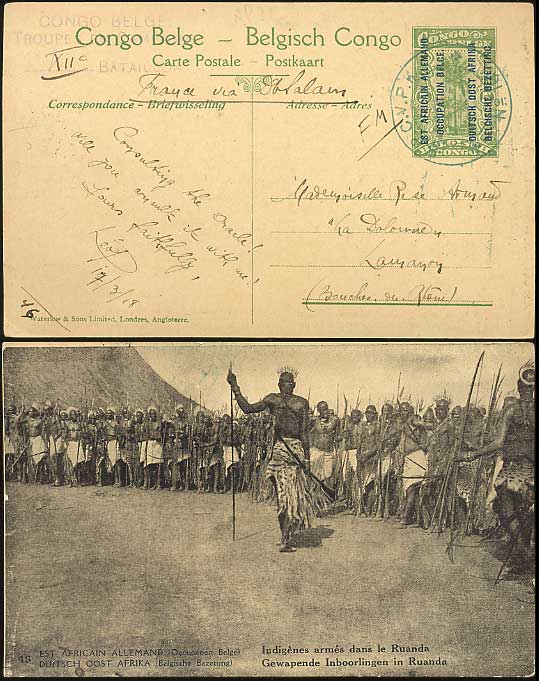 CONGO BELGE
TROUPE
XIIe BATAIL
Congo Belge - Belgisch Congo
Carte Postale - Postkaart
France via
Correspondance - Briefwisseling
Adresse - Adres
EST AFRICAIN ALLEMAND
OCCUPATION BELGE.
DUITSCH OOST AFRIKA
BELGISCHE BEZETTING.
CONGO
Consulting the oracle!
will you consult it with me!
Yours faithfully,
17/3/18
Mademoiselle
La
(Bouches du Rhône)
46
Waterlow & Sons Limited, Londres, Angleterre.
EST AFRICAIN ALLEMAND (Occupation Belge)
DUITSCH OOST AFRIKA (Belgische Bezetting)
Indigènes armés dans le Ruanda
Gewapende Inboorlingen in Ruanda